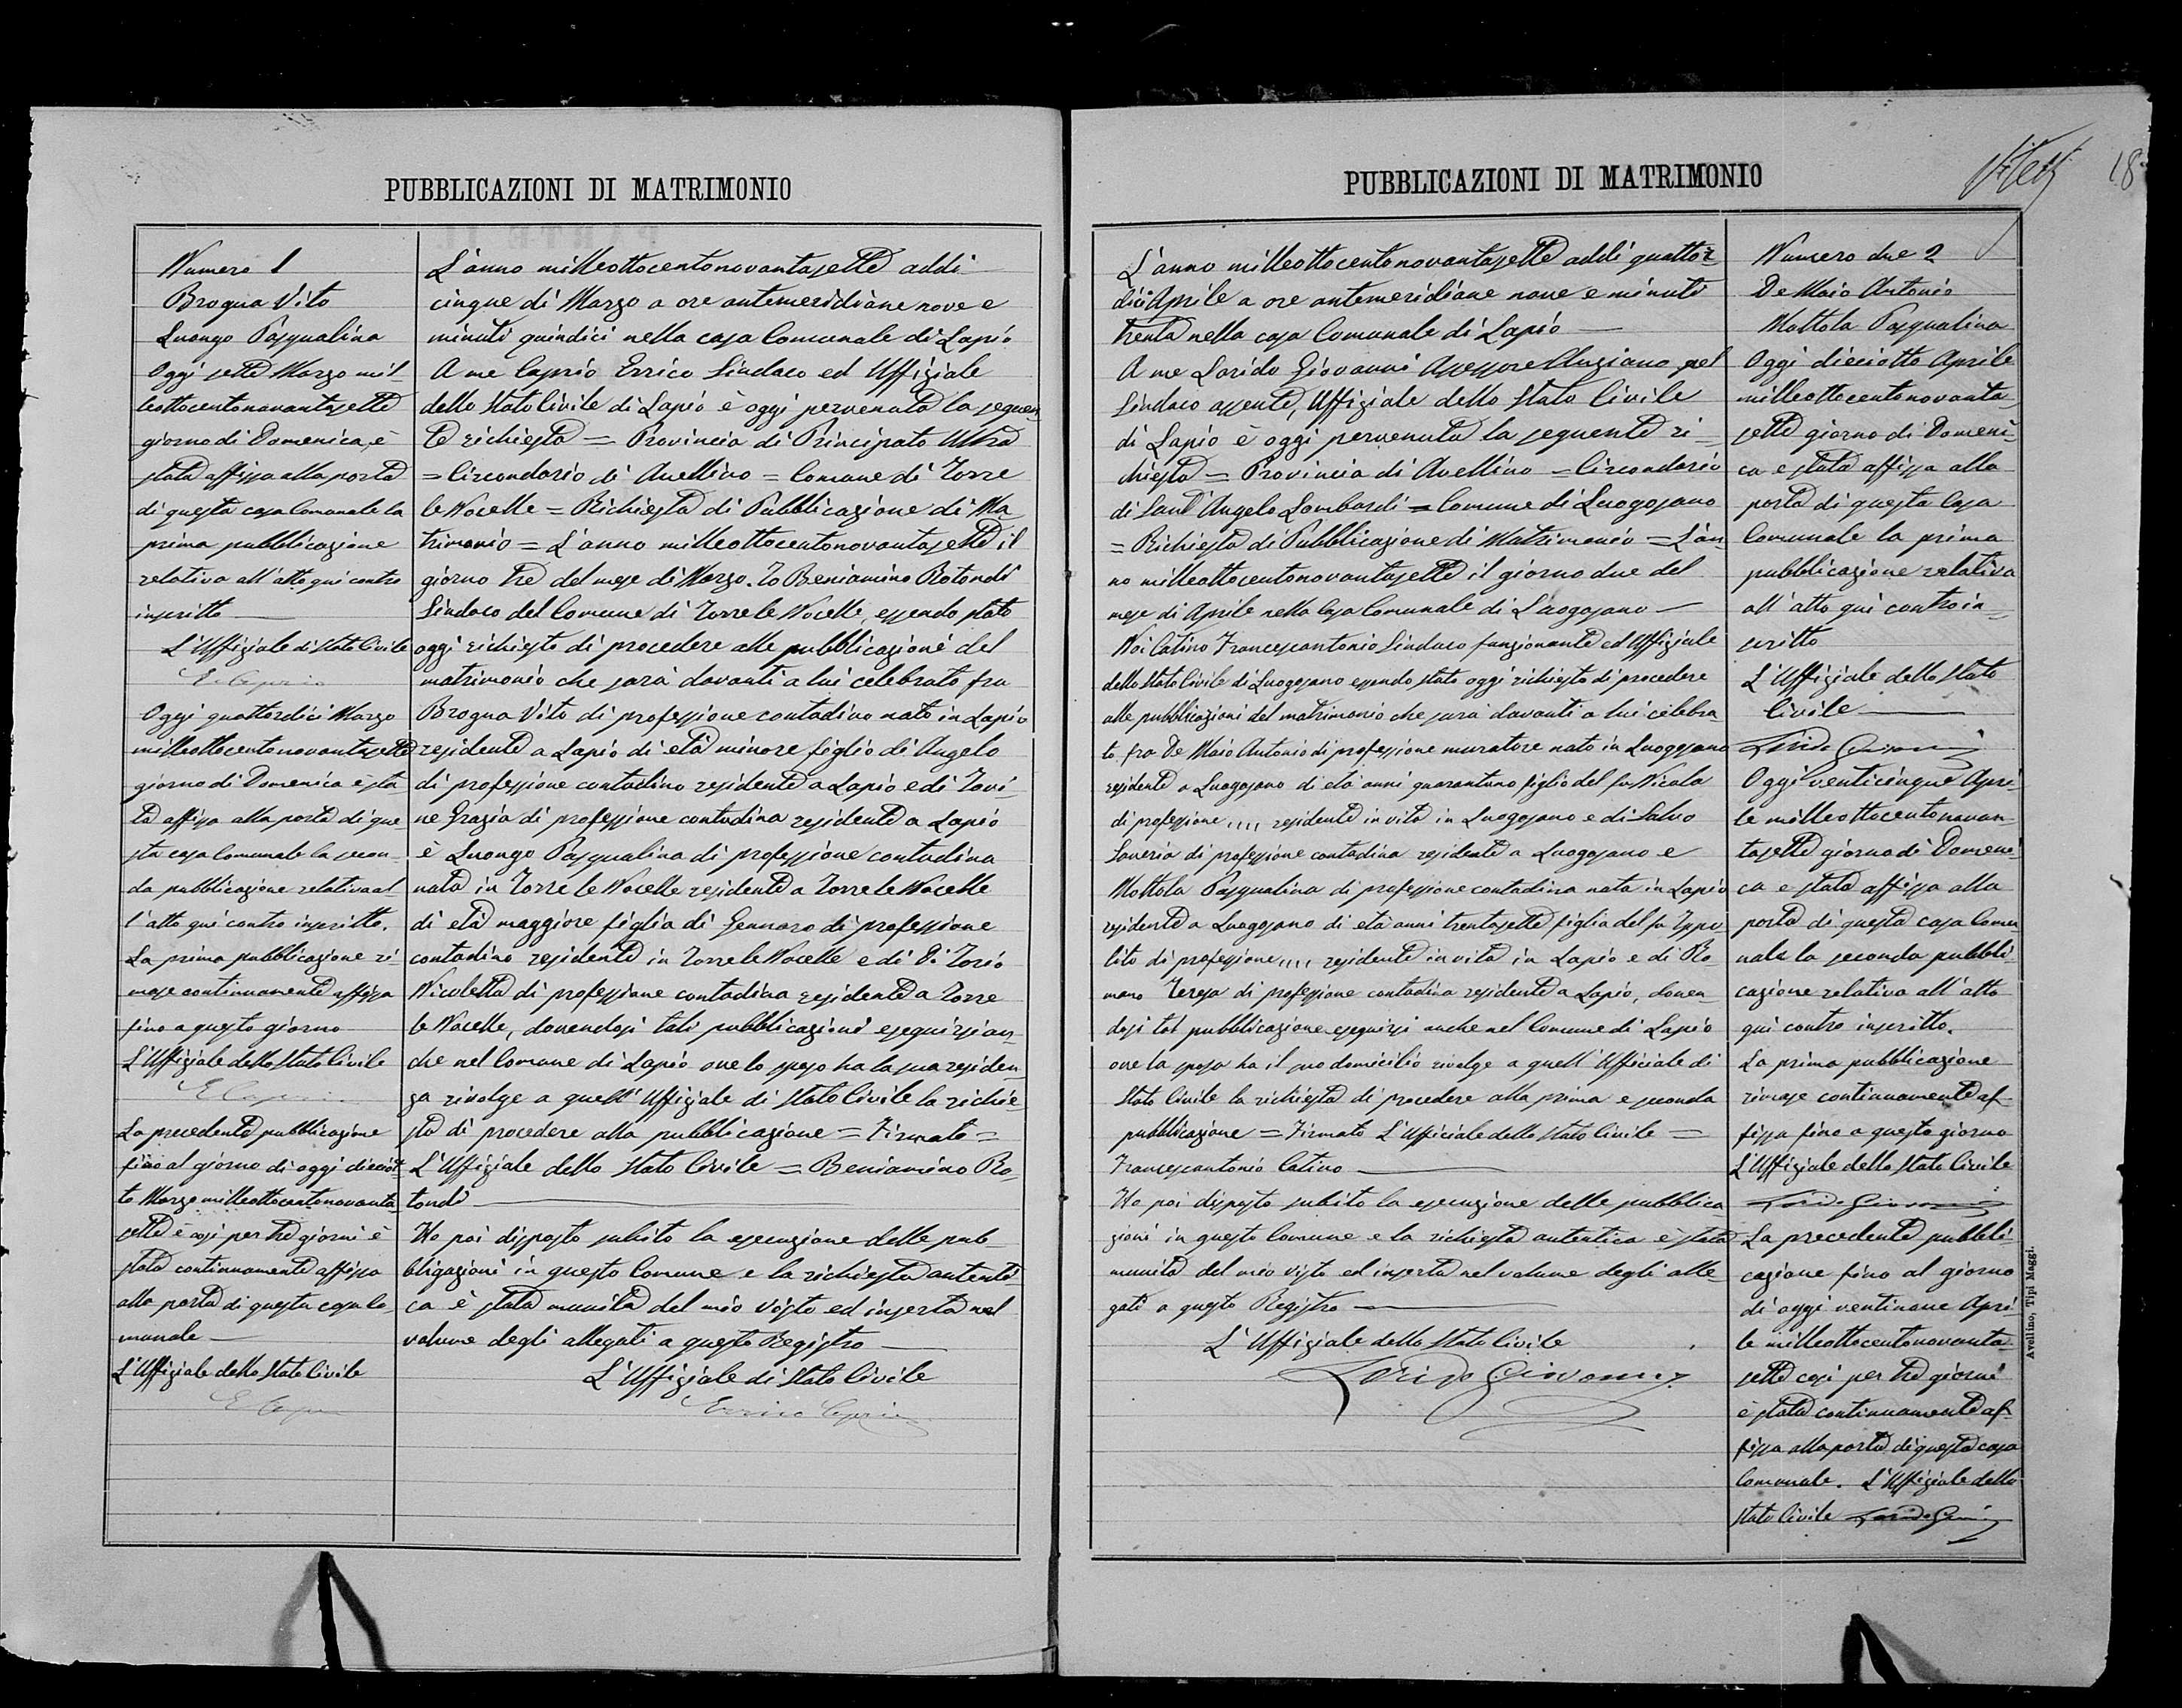 PUBBLICAZIONI DI MATRIMONIO
Numero 1
Brogna Vito
Luongo Pasqualina
Oggi sette Marzo mil-
leottocentonovantasette
giorno di Domenica, è
stata affissa alla porta
di questa casa Comunale la
prima pubblicazione
relativa all'atto qui contro
inscritto
L'Uffiziale di Stato Civile
E. Caprio
Oggi quattordici Marzo
milleottocentonovantasette
giorno di Domenica è sta
ta affissa alla porta di que-
sta casa Comunale la secon-
da pubblicazione relativa al
l'atto qui contro inscritto.
La prima pubblicazione ri-
mase continuamente affissa
fino a questo giorno
L'Uffiziale dello Stato Civile
E. Caprio
La precedente pubblicazione
fino al giorno di oggi diciot
to Marzo milleottocentonovanta
sette è così per tre giorni è
stata continuamente affissa
alla porta di questa casa Co
munale
L'Uffiziale dello Stato Civile
L'anno milleottocentonovantasette addi
cinque di Marzo a ore antemeridiane nove e
minuti quindici nella casa Comunale di Lapio
A me Caprio Errico Sindaco ed Uffiziale
dello Stato Civile di Lapio è oggi pervenuta la seguen
te richiesta = Provincia di Principato Ultra
= Circondario di Avellino = Comune di Torre
le Nocelle = Richiesta di Pubblicazione di Ma
trimonio = L'anno milleottocentonovantasette il
giorno tre del mese di Marzo. Io Beniamino Rotondi
Sindaco del Comune di Torre le Nocelle, essendo stato
oggi richiesto di procedere alle pubblicazioni del
matrimonio che sarà davanti a lui celebrato fra
Brogna Vito di professione contadino nato in Lapio
residente a Lapio di età minore figlio di Angelo
di professione contadino residente a Lapio e di Iovi-
ne Grazia di professione contadina residente a Lapio
è Luongo Pasqualina di professione contadina
nata in Torre le Nocelle residente a Torre le Nocelle
di età maggiore figlia di Gennaro di professione
contadino residente in Torre le Nocelle e di Di Iorio
Nicoletta di professione contadina residente a Torre
le Nocelle, dovendosi tali pubblicazioni eseguirsi an-
che nel Comune di Lapio ove lo sposo ha la sua residen-
za rivolge a quell'Uffiziale di Stato Civile la richie-
sta di procedere alla pubblicazione = Firmato =
L'Uffiziale dello Stato Civile = Beniamino Ro-
tondi
Ho poi disposto subito la esecuzione delle pub-
bligazioni in questo Comune e la richiesta autenti
ca è stata munita del mio visto ed inserta nel
volume degli allegati a questo Registro
L'Uffiziale di Stato Civile
Errico Caprio
PUBBLICAZIONI DI MATRIMONIO
18
L'anno milleottocentonovantasette addi quattor
dici Aprile a ore antemeridiane nove e minuti
trenta nella casa Comunale di Lapio
A me Lorido Giovanni Assessore Anziano pel
Sindaco assente, Uffiziale dello Stato Civile
di Lapio è oggi pervenuta la seguente ri-
chiesta = Provincia di Avellino = Circondario
di Sant'Angelo Lombardi = Comune di Luogosano
= Richiesta di Pubblicazione di Matrimonio = L'an-
no milleottocentonovantasette il giorno due del
mese di Aprile nella Casa Comunale di Luogosano
Noi Catino Francescantonio Sindaco funzionante ed Uffiziale
dello Stato Civile di Luogosano essendo stato oggi richiesto di procedere
alle pubblicazioni del matrimonio che sarà davanti a lui celebra-
to fra De Maio Antonio di professione muratore nato in Luogosano
residente a Luogosano di età anni quarantuno figlio del fu Nicola
di professione ,,,, residente in vita in Luogosano e di Salvo
Saveria di professione contadina residente a Luogosano e
Mottola Pasqualina di professione contadina nata in Lapio
residente a Luogosano di età anni trentasette figlia del fu Ippo-
lito di professione ,,,, residente in vita in Lapio e di Ro-
mano Teresa di professione contadina residente a Lapio, doven-
dosi tal pubblicazione eseguirsi anche nel Comune di Lapio
ove la sposa ha il suo domicilio rivolge a quell'Ufficiale di
Stato Civile la richiesta di procedere alla prima e seconda
pubblicazione = Firmato L'Ufficiale dello Stato Civile =
Francescantonio Catino
Ho poi disposto subito la esecuzione delle pubblica-
zioni in questo Comune e la richiesta autentica è stata
munita del mio visto ed inserta nel volume degli alle-
gati a questo Registro
L'Uffiziale dello Stato Civile
Lorido Giovanni
Numero due 2
De Maio Antonio
Mottola Pasqualina
Oggi dieciotto Aprile
milleottocentonovanta
sette giorno di Domeni-
ca e stata affissa alla
porta di questa Casa
Comunale la prima
pubblicazione relativa
all'atto qui contro in-
scritto
L'Uffiziale dello Stato
Civile
Lorido Giovanni
Oggi venticinque Apri-
le milleottocentonovan-
tasette giorno di Domeni-
ca e stata affissa alla
porta di questa casa Comu
nale la seconda pubbli-
cazione relativa all'atto
qui contro inscritto.
La prima pubblicazione
rimase continuamente af-
fissa fino a questo giorno
L'Uffiziale dello Stato Civile
Lorido Giovanni
La precedente pubbli-
cazione fino al giorno
di oggi ventinove Apri
le milleottocentonovanta
sette così per tre giorni
è stata continuamente af-
fissa alla porta di questa casa
Comunale. L'Uffiziale dello
Stato Civile Lorido Giovanni
Avellino, Tipi Maggi.